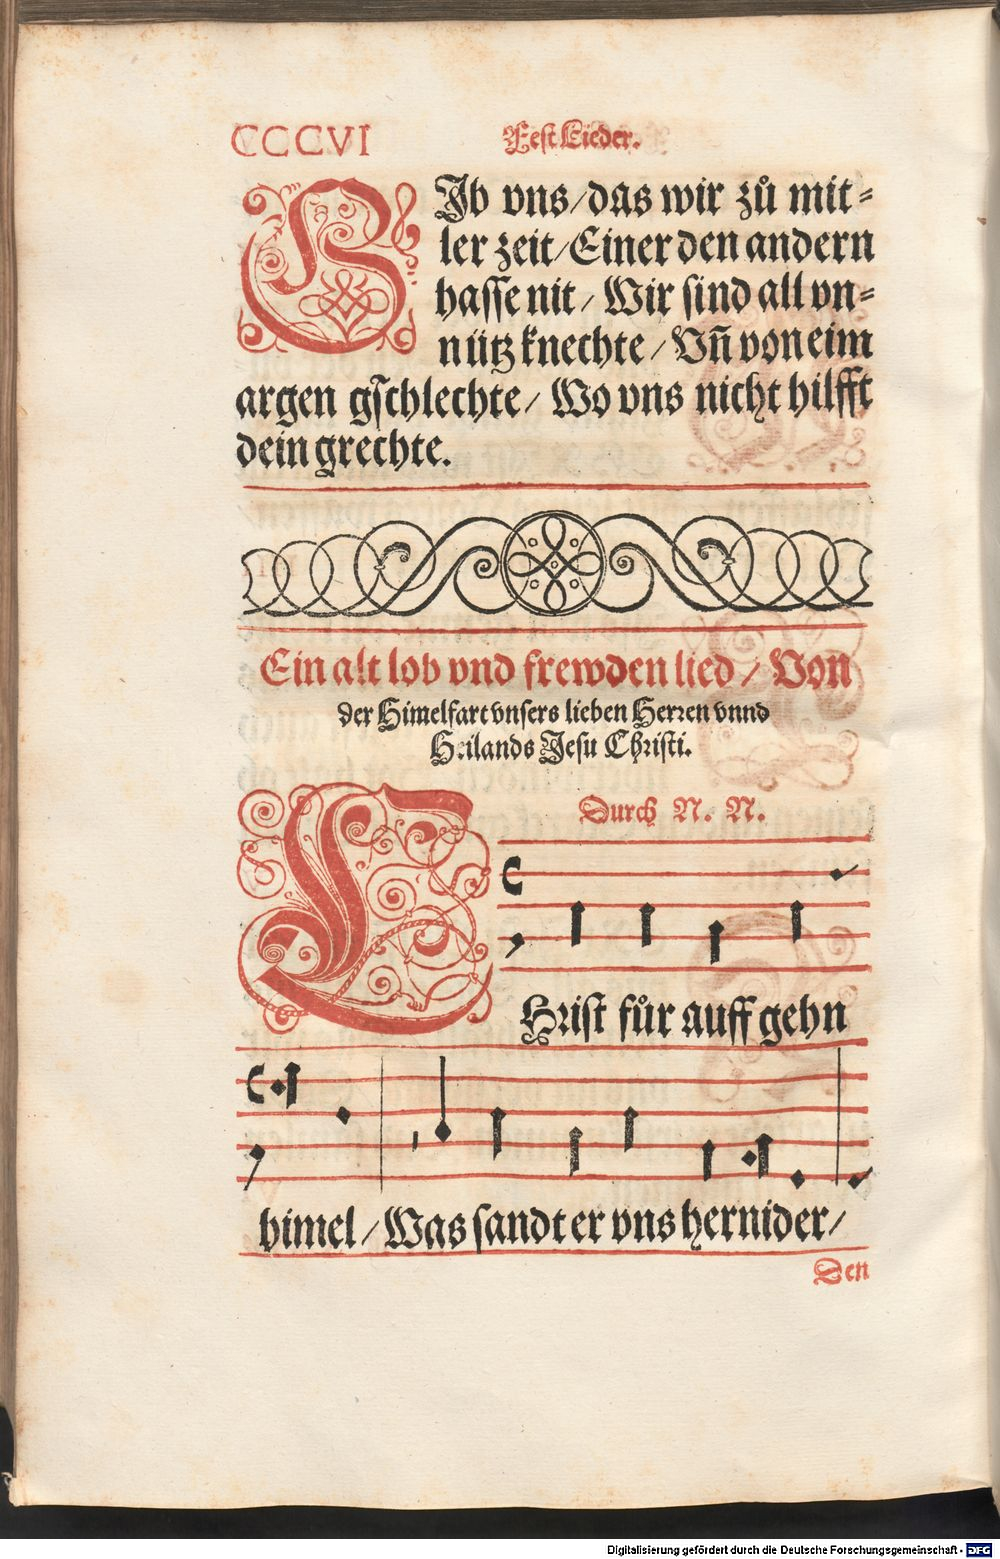 CCCVI
Fest Lieder.
GIb vns/das wir zů mit⸗
ler zeit/Einer den andern
hasse nit/Wir sind all vn⸗
nütz knechte/Vñ von eim
argen gschlechte/Wo vns nicht hilfft
dein grechte.
Ein alt lob vnd frewden lied/Von
der Himelfart vnsers lieben Herren vnnd
Heilands Jesu Christi.
Durch N. N.
CHrist fůr auff gehn
himel/Was sandt er vns hernider/
Den
Digitalisierung gefördert durch die Deutsche Forschungsgemeinschaft - DFG